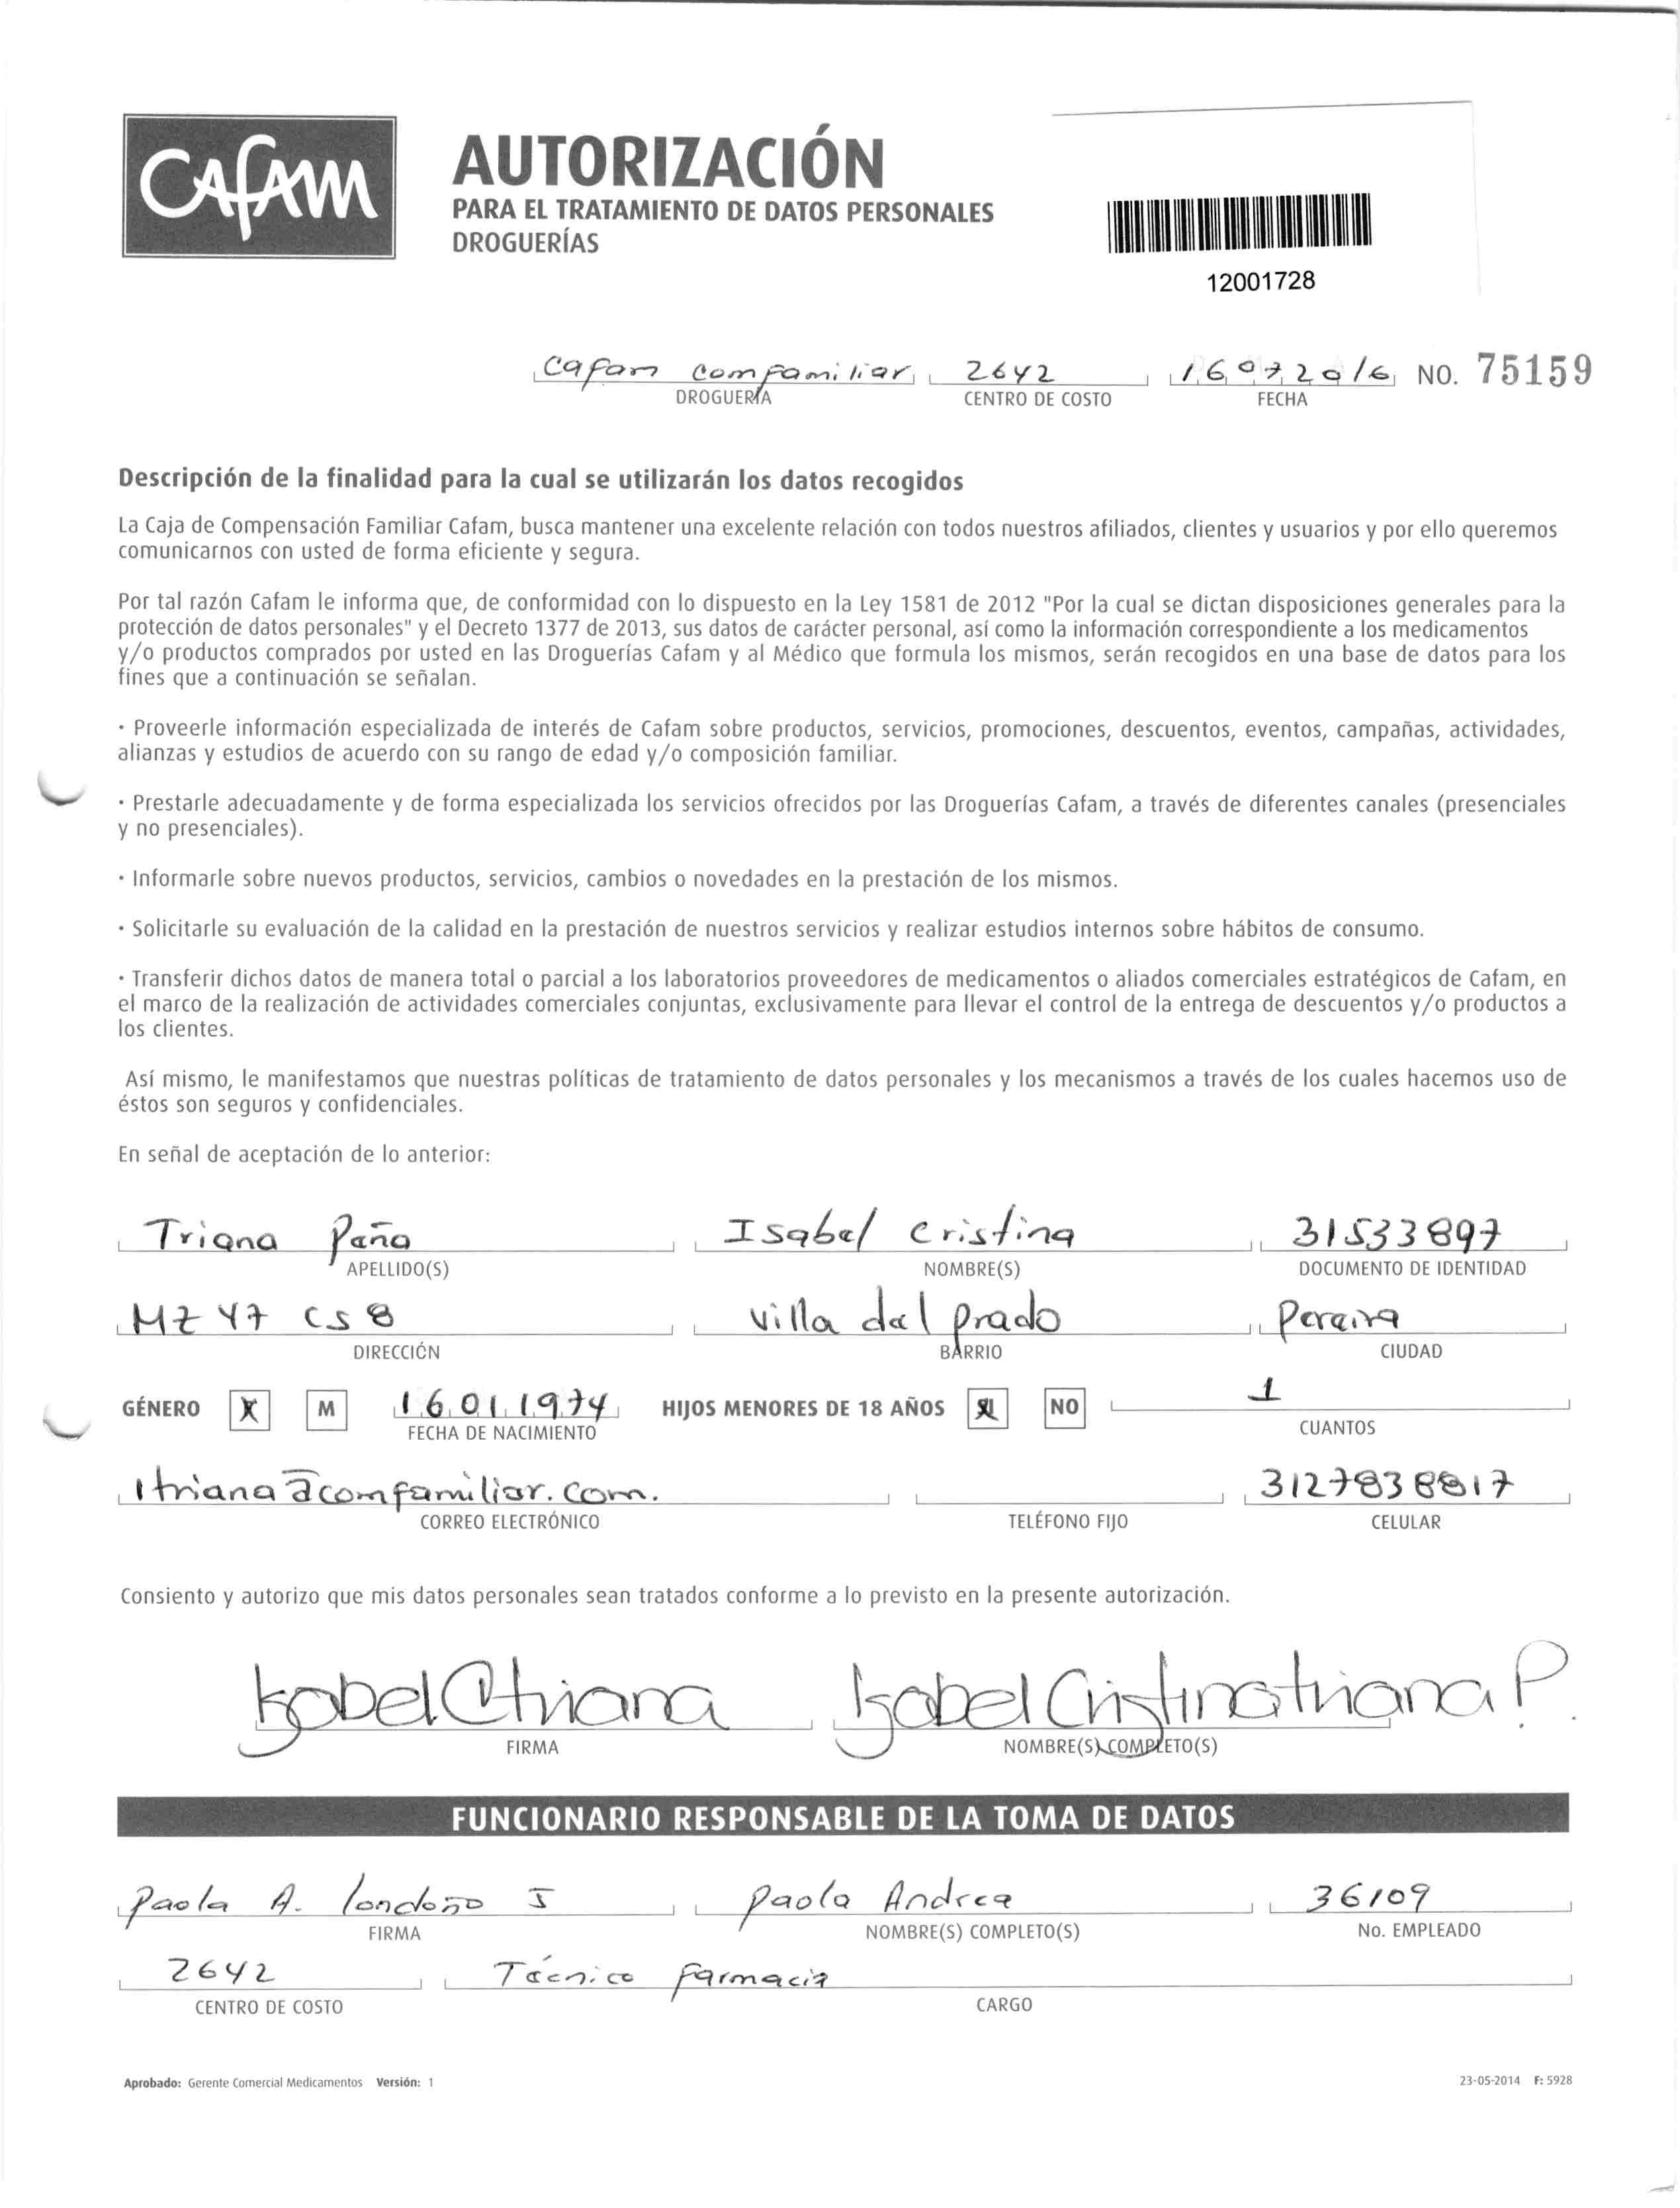 CAFAM
AUTORIZACIÓN
PARA EL TRATAMIENTO DE DATOS PERSONALES
DROGUERÍAS
12001728
Cafam Comfamiliar 2642 16072016 NO. 75159
DROGUERÍA CENTRO DE COSTO FECHA
Descripción de la finalidad para la cual se utilizarán los datos recogidos
La Caja de Compensación Familiar Cafam, busca mantener una excelente relación con todos nuestros afiliados, clientes y usuarios y por ello queremos
comunicarnos con usted de forma eficiente y segura.
Por tal razón Cafam le informa que, de conformidad con lo dispuesto en la Ley 1581 de 2012 "Por la cual se dictan disposiciones generales para la
protección de datos personales" y el Decreto 1377 de 2013, sus datos de carácter personal, así como la información correspondiente a los medicamentos
y/o productos comprados por usted en las Droguerías Cafam y al Médico que formula los mismos, serán recogidos en una base de datos para los
fines que a continuación se señalan.
· Proveerle información especializada de interés de Cafam sobre productos, servicios, promociones, descuentos, eventos, campañas, actividades,
alianzas y estudios de acuerdo con su rango de edad y/o composición familiar.
· Prestarle adecuadamente y de forma especializada los servicios ofrecidos por las Droguerías Cafam, a través de diferentes canales (presenciales
y no presenciales).
· Informarle sobre nuevos productos, servicios, cambios o novedades en la prestación de los mismos.
· Solicitarle su evaluación de la calidad en la prestación de nuestros servicios y realizar estudios internos sobre hábitos de consumo.
· Transferir dichos datos de manera total o parcial a los laboratorios proveedores de medicamentos o aliados comerciales estratégicos de Cafam, en
el marco de la realización de actividades comerciales conjuntas, exclusivamente para llevar el control de la entrega de descuentos y/o productos a
los clientes.
Así mismo, le manifestamos que nuestras políticas de tratamiento de datos personales y los mecanismos a través de los cuales hacemos uso de
éstos son seguros y confidenciales.
En señal de aceptación de lo anterior:
Triana Peña Isabel Cristina 31533897
APELLIDO(S) NOMBRE(S) DOCUMENTO DE IDENTIDAD
Mz 47 cs 8 Villa del prado Pereira
DIRECCIÓN BARRIO CIUDAD
GÉNERO X M 16011974 HIJOS MENORES DE 18 AÑOS SI NO 1
FECHA DE NACIMIENTO CUANTOS
itriana@comfamiliar.com. 3127838817
CORREO ELECTRÓNICO TELÉFONO FIJO CELULAR
Consiento y autorizo que mis datos personales sean tratados conforme a lo previsto en la presente autorización.
Isabel Ctriana Isabel Cristina triana P.
FIRMA NOMBRE(S) COMPLETO(S)
FUNCIONARIO RESPONSABLE DE LA TOMA DE DATOS
Paola A. londoño I Paola Andrea 36109
FIRMA NOMBRE(S) COMPLETO(S) No. EMPLEADO
2642 Técnico farmacia
CENTRO DE COSTO CARGO
Aprobado: Gerente Comercial Medicamentos Versión: 1 23-05-2014 F: 5928